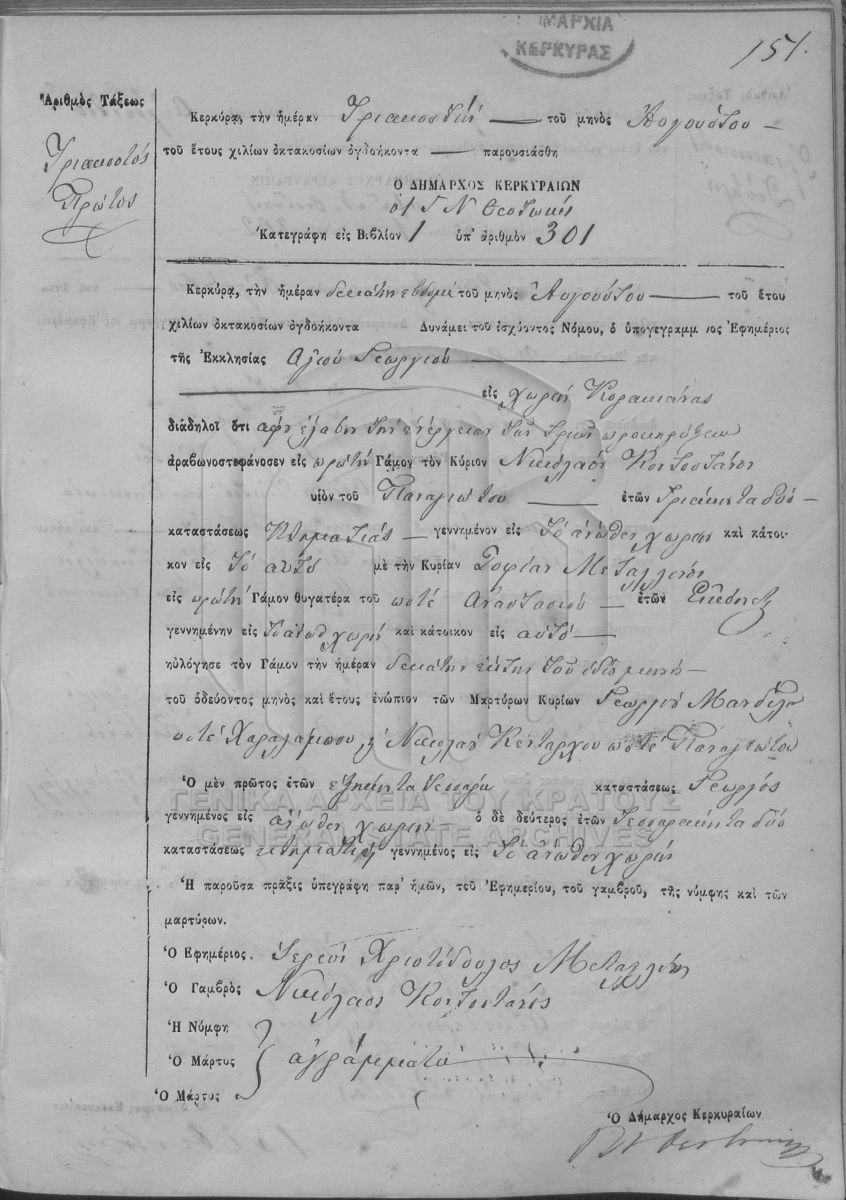 ΜΑΡΧΙΑ
ΚΕΡΚΥΡΑΣ
151.
Ἀριθμὸς Τάξεως
Τριακοστός
Πρῶτος
Κερκύρᾳ, τὴν ἡμέραν Τριακοστήν τοῦ μηνὸς Αὐγούστου
τοῦ ἔτους χιλίων ὀκτακοσίων ὀγδοήκοντα παρουσιάσθη
Ὁ ΔΗΜΑΡΧΟΣ ΚΕΡΚΥΡΑΙΩΝ
Θεοτόκης
Κατεγράφη εἰς Βιβλίον 1 ὑπ' ἀριθμὸν 301
Κερκύρᾳ, τὴν ἡμέραν δεκάτην εβδομη τοῦ μηνὸς Αὐγούστου τοῦ ἔτου
χιλίων ὀκτακοσίων ὀγδοήκοντα Δυνάμει τοῦ ἰσχύοντος Νόμου, ὁ ὑπογεγραμμένος Ἐφημέριος
τῆς Ἐκκλησίας Αγιου Γεωργιου
εἰς χωριον Κορακιάνας
διάδηλοῖ ὅτι αφου ελαβεν την ενεργειαν των τριων προκηρυξεων
ἀραβωνοστεφάνοσεν εἰς πρωτην Γάμον τὸν Κύριον Νικολαον Κοντοστανον
υἱὸν τοῦ Παναγιωτου ἐτῶν τριακοντα δυο
καταστάσεως Κτηματιας γεννημένον εἰς το ανωθεν χωριον καὶ κάτοι-
κον εἰς το αυτο μὲ τὴν Κυρίαν Σοφιαν Μεταλληνου
εἰς πρωτην Γάμον θυγατέρα τοῦ ποτε Αναστασιου ἐτῶν
γεννημένην εἰς το ανωθ χωριον καὶ κάτοικον εἰς αυτο
ηὐλόγησε τὸν Γάμον τὴν ἡμέραν δεκατην εκτην του ιδιου μηνος
τοῦ ὁδεύοντος μηνὸς καὶ ἔτους ἐνώπιον τῶν Μαρτύρων Κυρίων Γεωργιου Μανδυλα
ποτε Χαραλαμπου, κ Νικολαου Κενταρχου ποτε Παναγιωτου
Ὁ μὲν πρῶτος ἐτῶν εξηκοντα τεσσαρων καταστάσεως Γεωργος
γεννημένος εἰς ανωθεν χωριον ὁ δὲ δεύτερος ἐτῶν τεσσαρακοντα δυο
καταστάσεως κτηματιας γεννημένος εἰς το ανωθεν χωριον
Ἡ παροῦσα πρᾶξις ὑπεγράφη παρ' ἡμῶν, τοῦ Ἐφημερίου, τοῦ γαμβροῦ, τῆς νύμφης καὶ τῶν
μαρτύρων.
Ὁ Ἐφημέριος. Ιερευς Χριστόδουλος Μεταλληνος
Ὁ Γαμβρὸς Νικόλαος Κοντοστανος
Ἡ Νύμφη
Ὁ Μάρτυς αγραμματοι
Ὁ Μάρτυς
Ὁ Δήμαρχος Κερκυραίων
ΓΕΝΙΚΑ ΑΡΧΕΙΑ ΤΟΥ ΚΡΑΤΟΥΣ
GENERAL STATE ARCHIVES